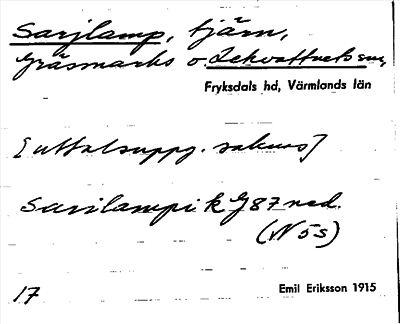 Sarjlamp, tjärn,
Gräsmarks o. Lekvattnets snr,
Fryksdals hd, Värmlands län
[uttalsuppg. saknas]
Sarilampi k G 87 ned.
(N 5 s)
17 Emil Eriksson 1915